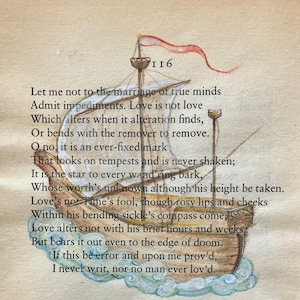 116
Let me not to the marriage of true minds
Admit impediments. Love is not love
Which alters when it alteration finds,
Or bends with the remover to remove.
O no, it is an ever-fixed mark
That looks on tempests and is never shaken;
It is the star to every wand'ring bark,
Whose worth's unknown although his height be taken.
Love's not Time's fool, though rosy lips and cheeks
Within his bending sickle's compass come;
Love alters not with his brief hours and weeks,
But bears it out even to the edge of doom.
If this be error and upon me prov'd,
I never writ, nor no man ever lov'd.